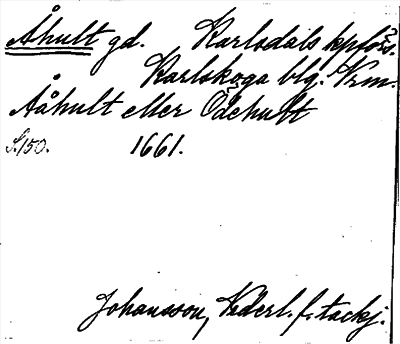 Åhult gd. Karlsdals kpförs.
Karlskoga blg. Vrm.
Ååhult eller Ödehult
S. 150. 1661.
Johansson, Nederl. f. tackj.